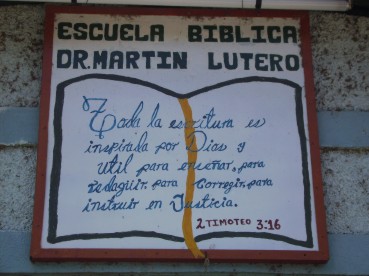 ESCUELA BIBLICA
DR. MARTIN LUTERO
Toda la escritura es
inspirada por Dios y
util para enseñar, para
redagüir, para corregir, para
instruir en Justicia.
2 TIMOTEO 3:16